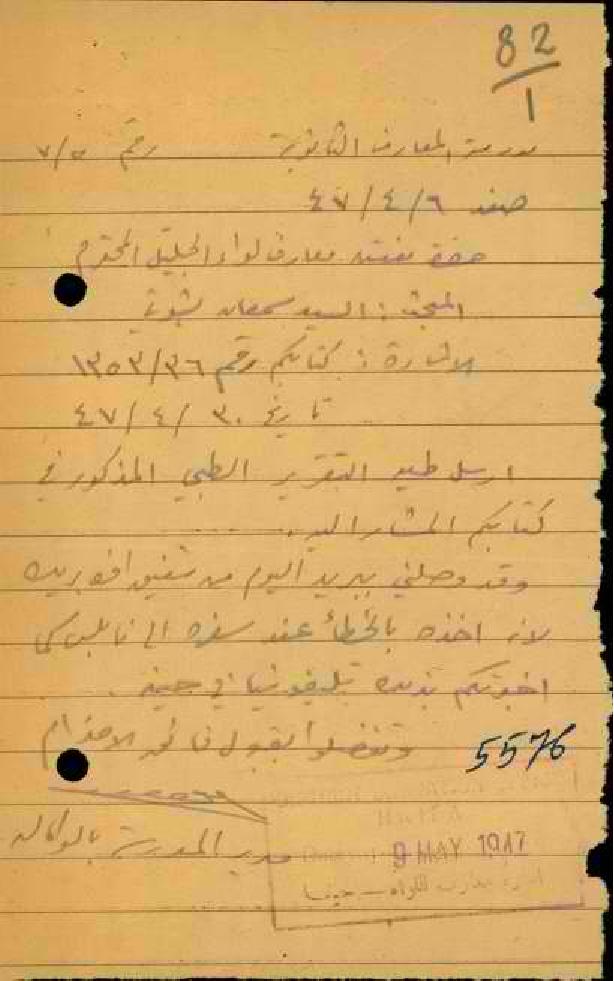 82
1
مدرسة المعارف الثانوية رقم ٧/٥
صفد ٦/٤/٤٧
حضرة مفتش معارف لواء الجليل المحترم
المبحث : السيد سمعان
الاشارة : كتابكم رقم ١٣٥٣/٣٦
تاريخ ٣٠/٤/٤٧
ارسل طيه التقرير الطبي المذكور في
كتابكم المشار اليه
وقد وصلني ببريد اليوم من شقيق
لانه اخذه بالخطأ عند سفره الى نابلس كما
اخبرتكم بذلك تليفونيا في حينه .
وتفضلوا بقبول فائق الاحترام
5576
مدير المدرسة بالوكالة
9 MAY 1947
ادارة معارف اللواء - حيفا